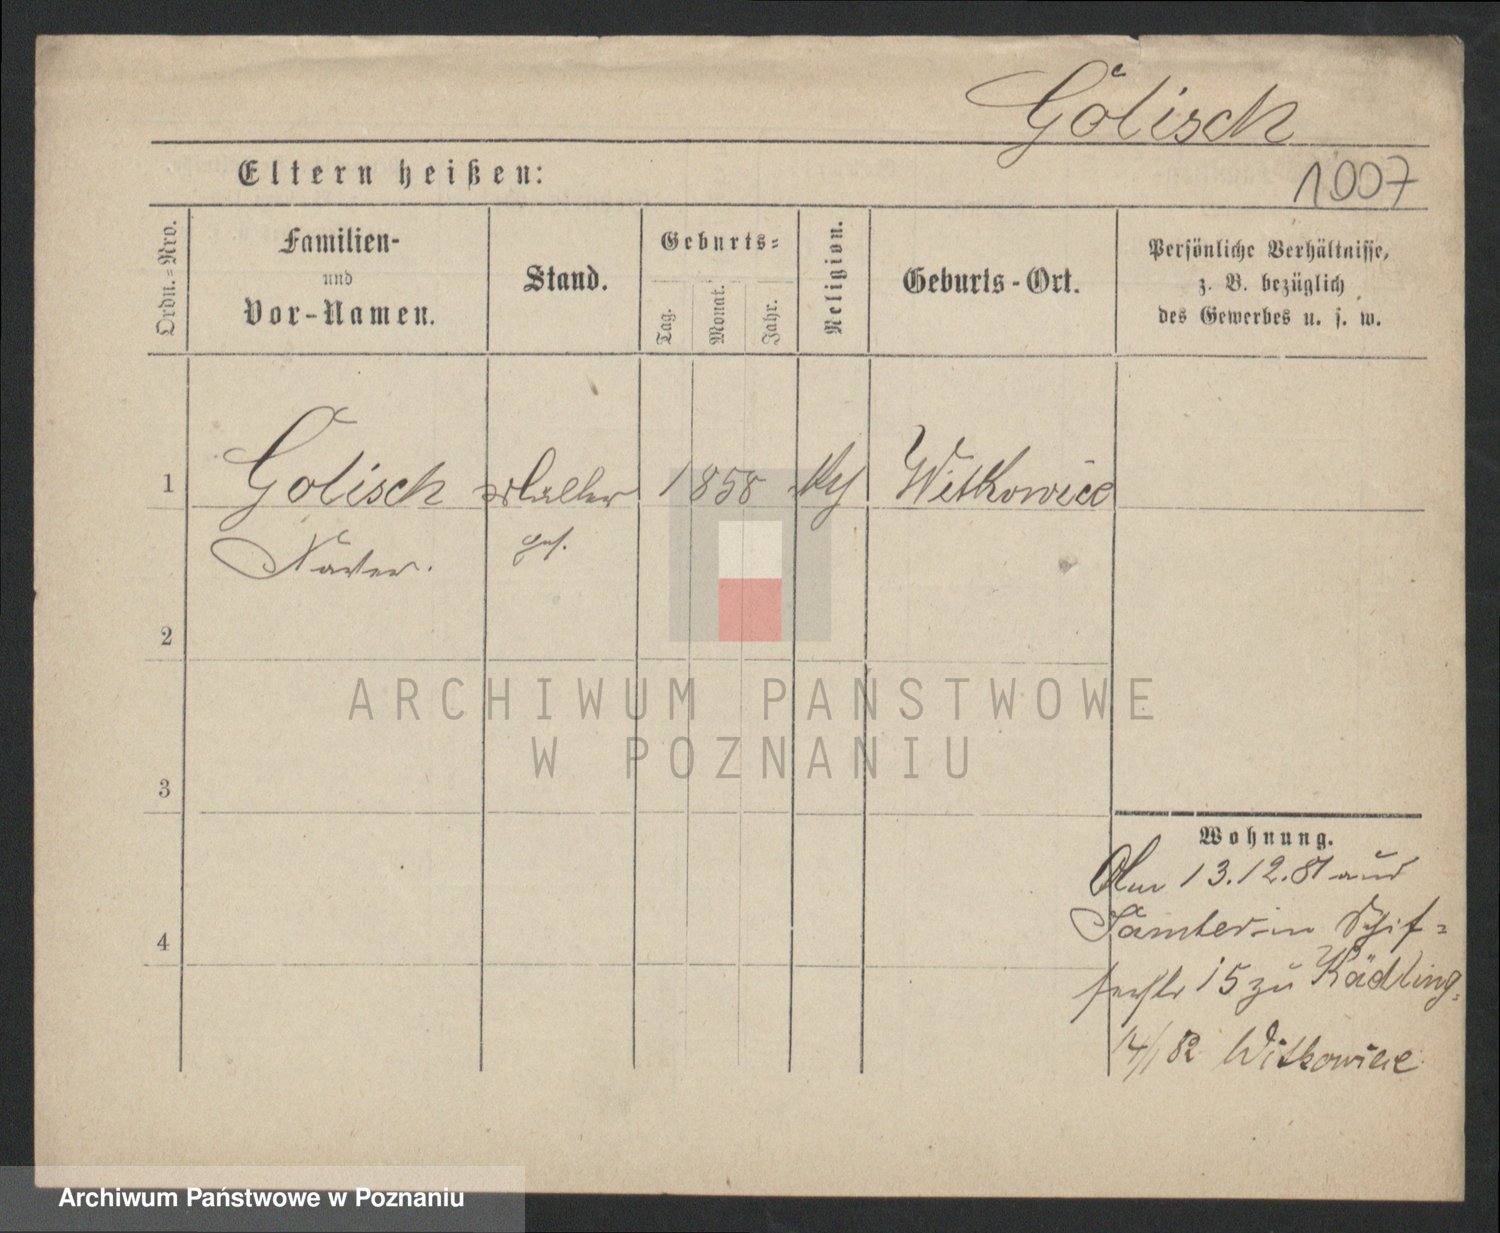 Golisch
1007
Eltern heißen:
Ordn.=Nro.
Familien-
und
Vor-Namen.
Stand.
Geburts=
Tag.
Monat.
Jahr.
Religion.
Geburts-Ort.
Persönliche Verhältnisse,
z. B. bezüglich
des Gewerbes u. s. w.
1
Golisch
1858
Witkowice
2
3
4
ARCHIWUM PAŃSTWOWE
W POZNANIU
Wohnung.
Am 13.12.81 aus
Samter in
15 zu
14/1 82 Witkowice
Archiwum Państwowe w Poznaniu